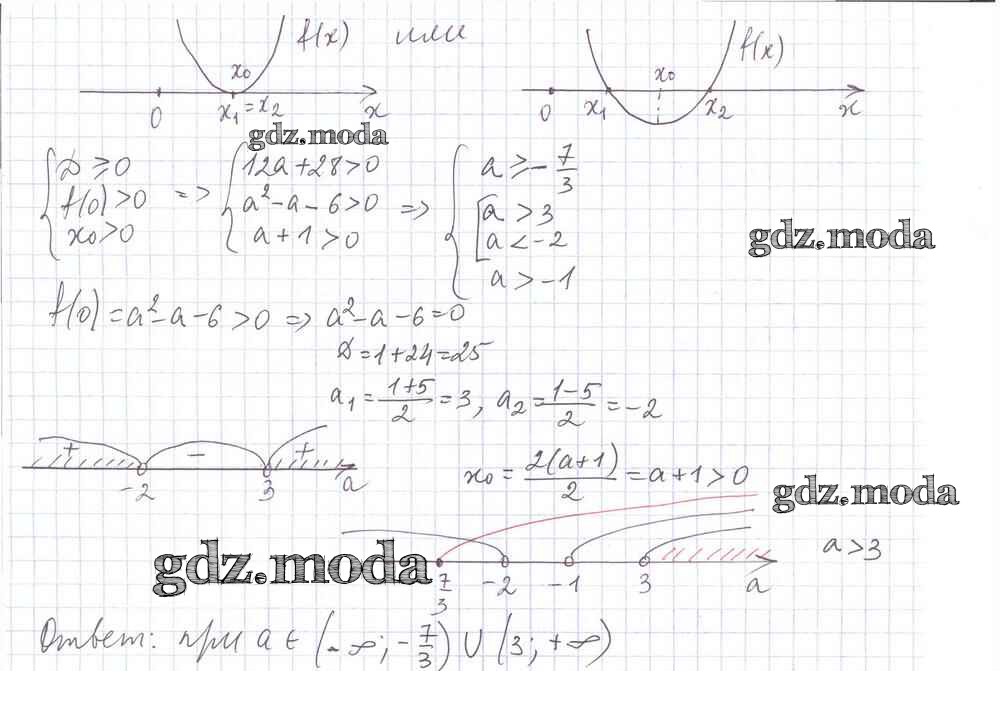 f(x) или f(x)
x₀ x₀
0 x₁ = x₂ x 0 x₁ x₂ x
gdz.moda
{ D ≥ 0 { 12a + 28 > 0 { a ≥ -7/3
{ f(0) > 0 => { a² - a - 6 > 0 => { [ a > 3
{ x₀ > 0 { a + 1 > 0 { [ a < -2
{ a > -1
gdz.moda
f(0) = a² - a - 6 > 0 => a² - a - 6 = 0
D = 1 + 24 = 25
a₁ = (1+5)/2 = 3, a₂ = (1-5)/2 = -2
+ - +
-2 3 a
x₀ = 2(a+1)/2 = a + 1 > 0
gdz.moda
gdz.moda
a > 3
7/3 -2 -1 3 a
Ответ: при a ∈ (-∞; -7/3) ∪ (3; +∞)